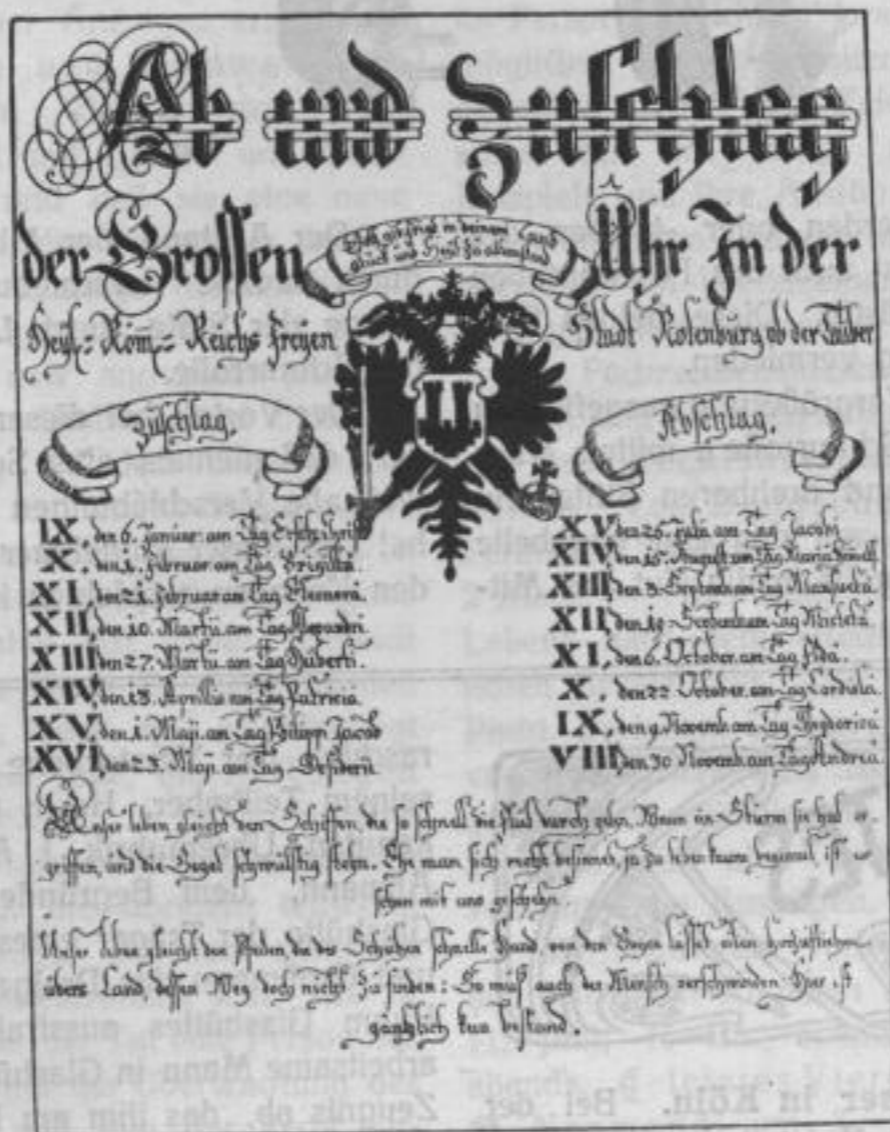 Ab und Zuschlag
der Grossen Uhr In der
Gott gib Fried in deinem Land
glück und Heyl zu allem stand
Heyl: Röm: Reichs Freyen Stadt Rotenburg ob der Tauber
Zuschlag.
IX, den 6. Januar: am Tag
X, den 1. Februar am Tag Brigitta.
XI, den 21. Februar am Tag Eleonora.
XII, den 10. Martii am Tag Alexandri
XIII, den 27. Martii am Tag Huberti.
XIV, den 13. Aprillis am Tag Patricia.
XV, den 1. Maji am Tag Philipp Jacob
XVI, den 23. Maji am Tag Desiderii
Abschlag.
XV, den 25. Julii am Tag Jacobi
XIV, den 15. August am Tag Maria
XIII, den 3. Septemb. am Tag Mansueta
XII, den 19. Septemb. am Tag
XI, den 6. October am Tag Fida.
X, den 22. October am Tag Cordula.
IX, den 9. Novemb. am Tag Theodorica
VIII, den 30. Novemb. am Tag Andrea.
Unser leben gleicht den Schiffen, die so schnell die Flut durch gehn, Wenn ein Sturm sie hat er-
griffen, und die Segel schwülstig stehn. Ehe man sich recht besinnet, ja zu leben kaum beginnet ist es
schon mit uns geschehn.
Unser leben gleicht den Pfeilen, die des Schützen schnelle Hand von dem Bogen lasset eilen
übers Land, dessen Weg doch nicht zu finden: So muß auch der Mensch verschwinden Hier ist
gäntzlich kein bestand.